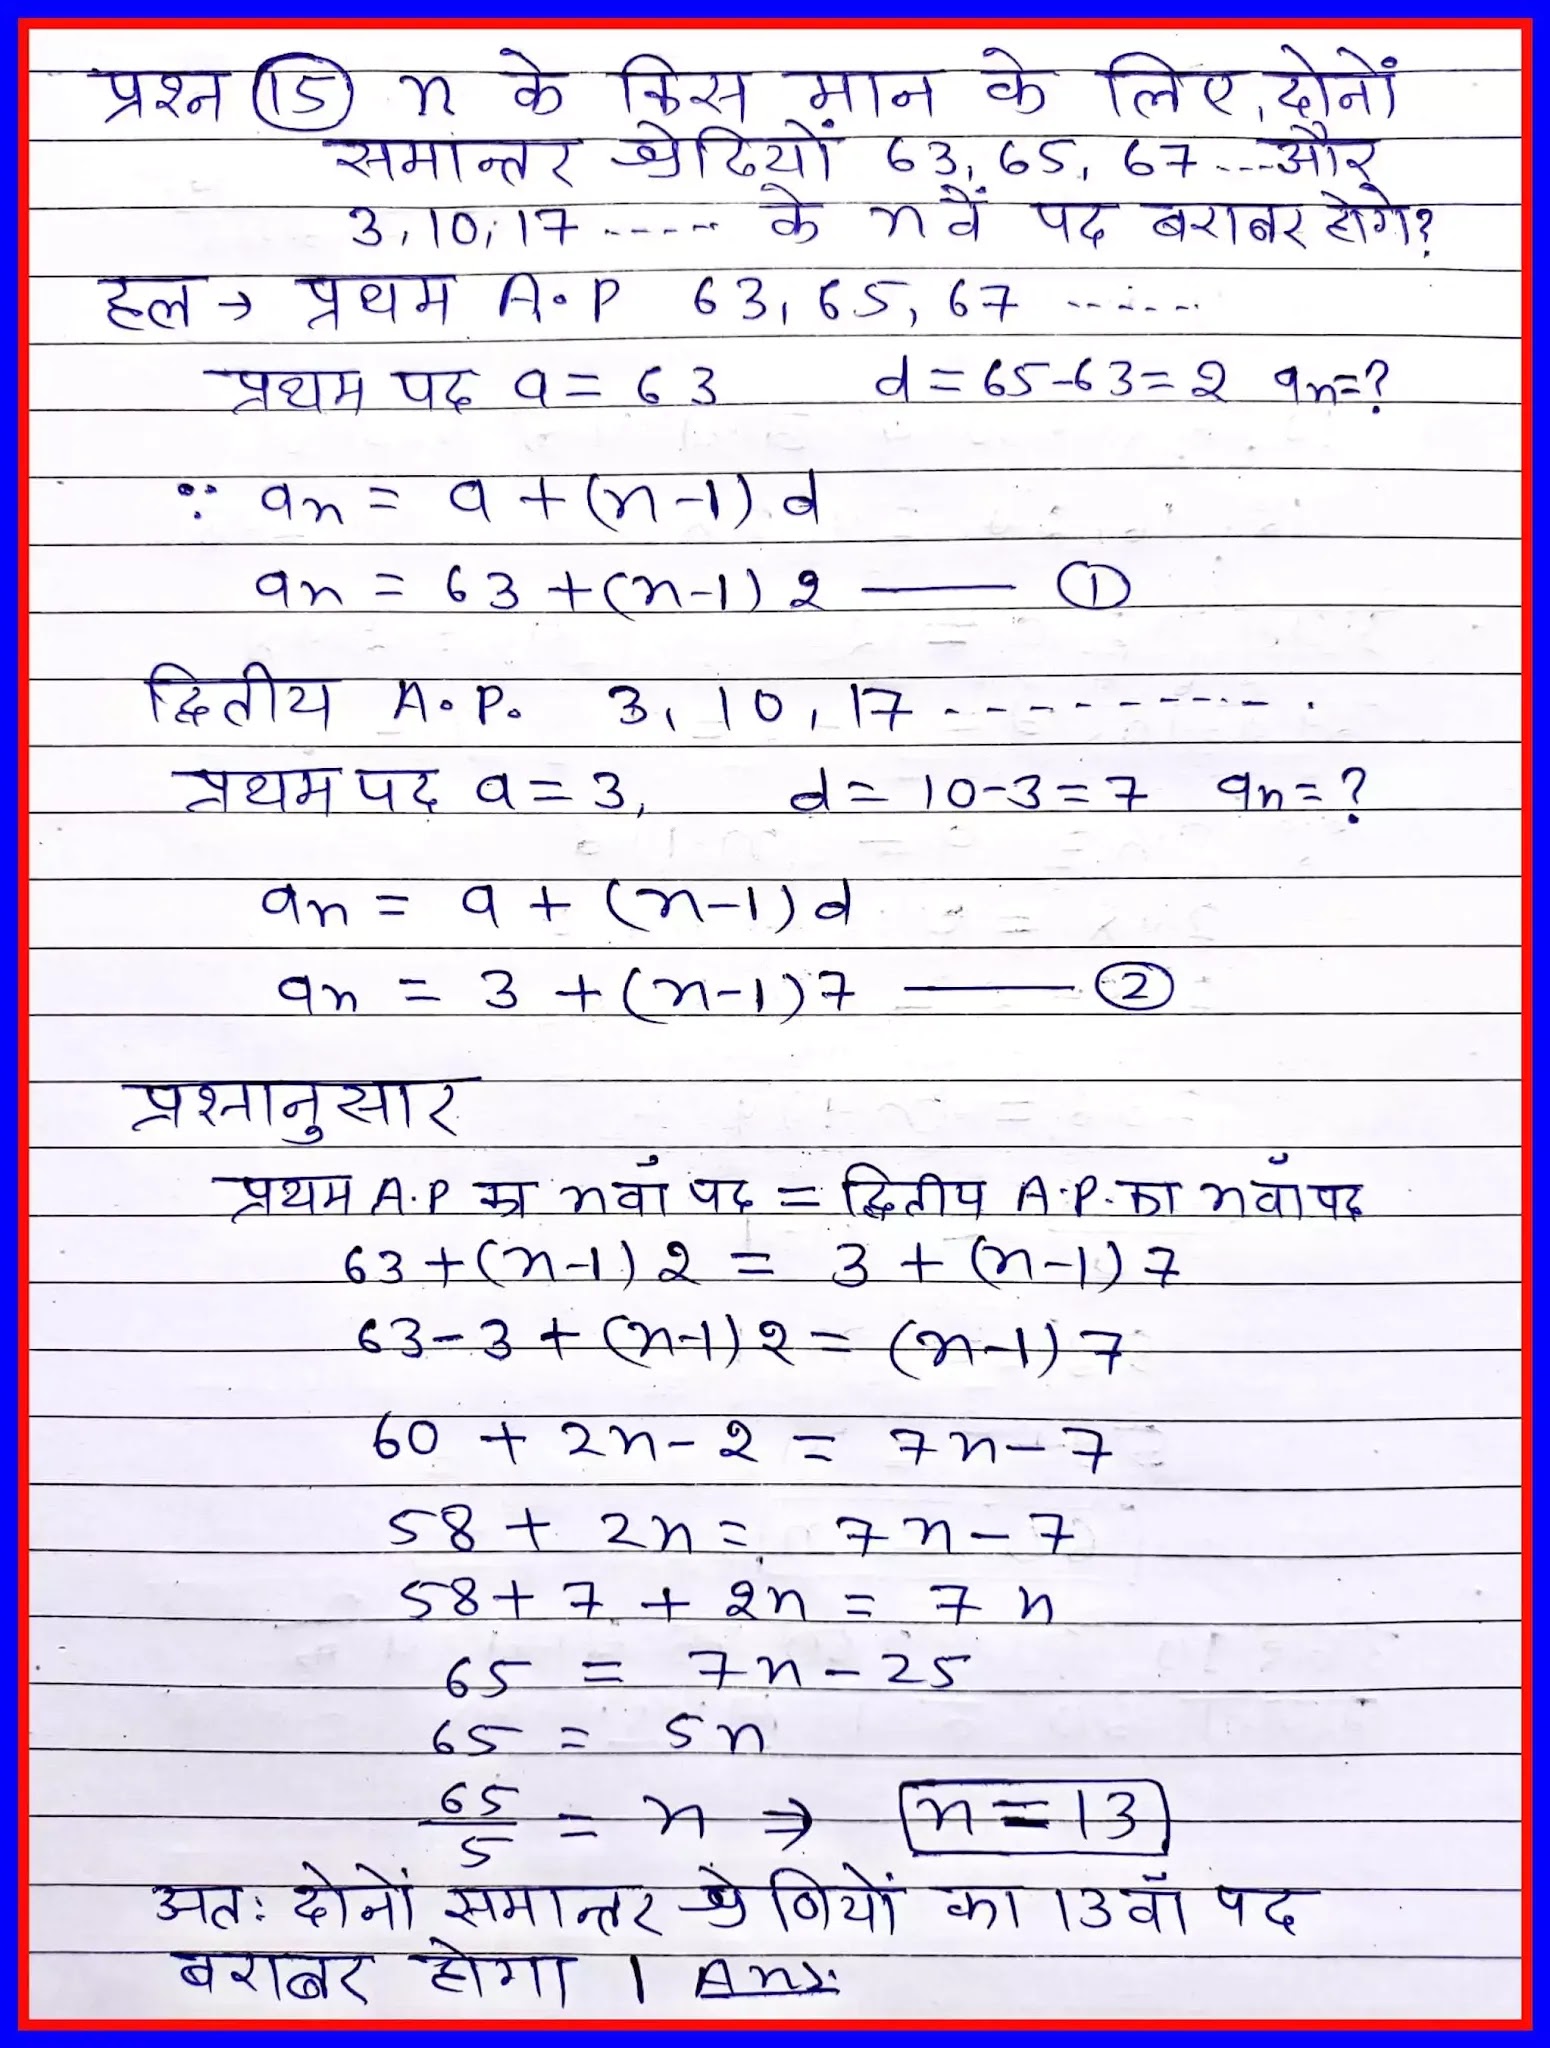 प्रश्न 15 n के किस मान के लिए, दोनों
समान्तर श्रेढियों 63, 65, 67 ... और
3, 10, 17 ..... के n वें पद बराबर होगे?
हल → प्रथम A.P 63, 65, 67 ......
प्रथम पद a = 63 d = 65-63 = 2 an = ?
∵ an = a + (n-1) d
an = 63 + (n-1) 2 —— 1
द्वितीय A.P. 3, 10, 17 ----------.
प्रथम पद a = 3, d = 10-3 = 7 an = ?
an = a + (n-1) d
an = 3 + (n-1) 7 —— 2
प्रश्नानुसार
प्रथम A.P का nवाँ पद = द्वितीय A.P. का nवाँ पद
63 + (n-1) 2 = 3 + (n-1) 7
63 - 3 + (n-1) 2 = (n-1) 7
60 + 2n - 2 = 7n - 7
58 + 2n = 7n - 7
58 + 7 + 2n = 7n
65 = 7n - 25
65 = 5n
65/5 = n ⇒ n = 13
अतः दोनों समान्तर श्रेणियों का 13वाँ पद
बराबर होगा । Ans: